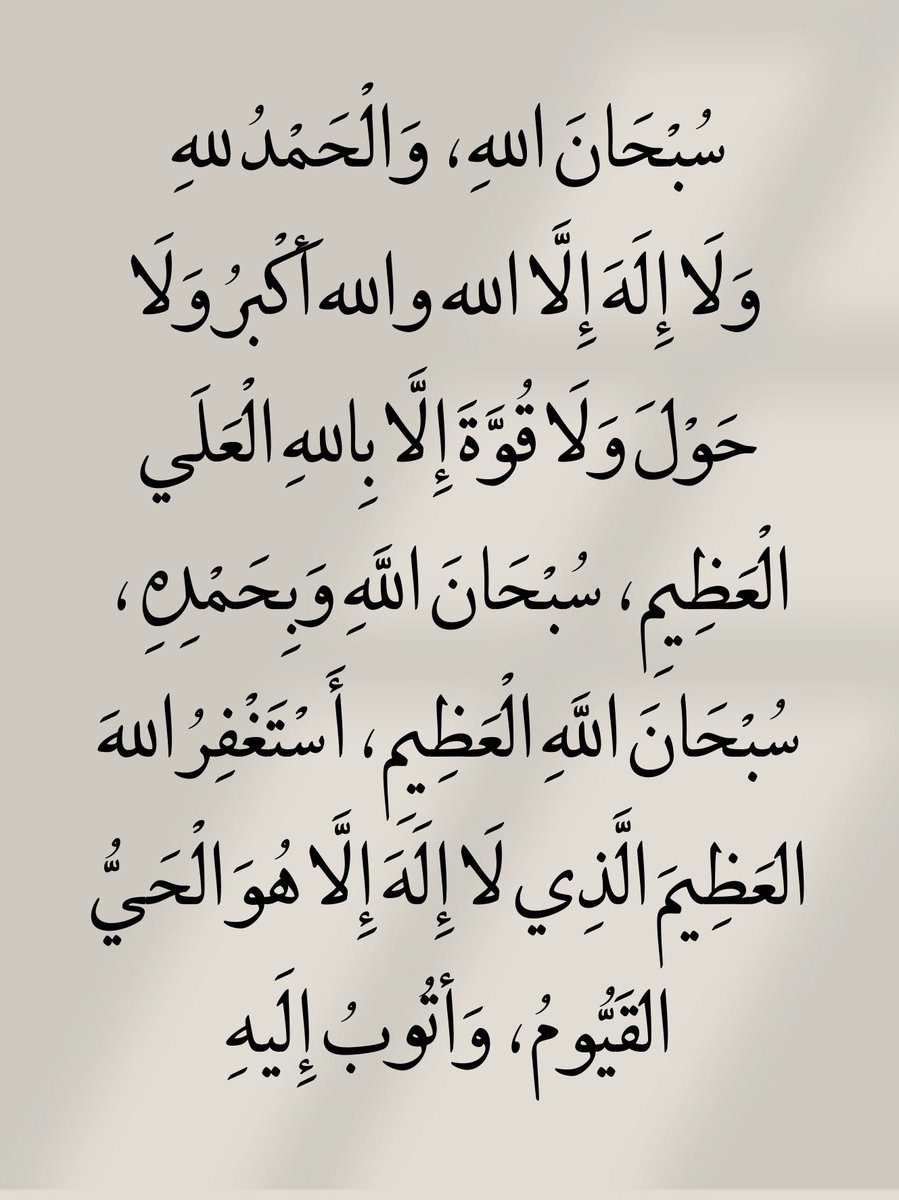 سُبْحَانَ اللهِ، وَالْحَمْدُ للهِ
وَلَا إِلَهَ إِلَّا الله والله أَكْبرُ وَلَا
حَوْلَ وَلَا قُوَّةَ إِلَّا بِاللهِ الْعَلَي
الْعَظِيمِ، سُبْحَانَ اللَّهِ وَبِحَمْدِهِ،
سُبْحَانَ اللَّهِ الْعَظِيمِ، أَسْتَغْفِرُ اللهَ
العَظِيمَ الَّذِي لَا إِلَهَ إِلَّا هُوَ الْحَيُّ
القَيُّومُ، وَأتُوبُ إِلَيهِ